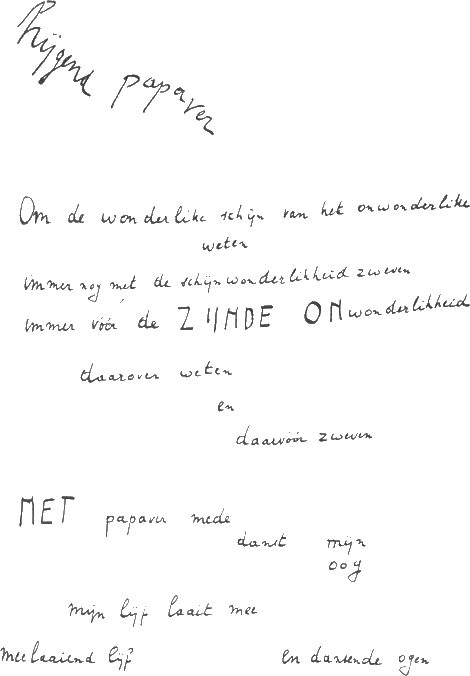 hijgend papaver
Om de wonderlike schijn van het onwonderlike
weten
immer nog met de schijnwonderlikheid zweven
immer vóór de ZIJNDE ONwonderlikheid
daarover weten
en
daarvóór zweven
MET papaver mede
danst mijn
oog
mijn lijf laait mee
meelaaiend lijf en dansende ogen